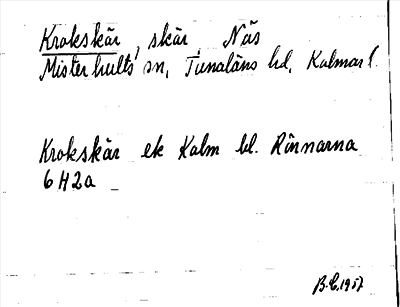 Krokskär, skär, Näs
Misterhults sn, Tunaläns hd, Kalmar l.
Krokskär ek Kalm bl. Rönnarna
6H2a
B.E. 1957